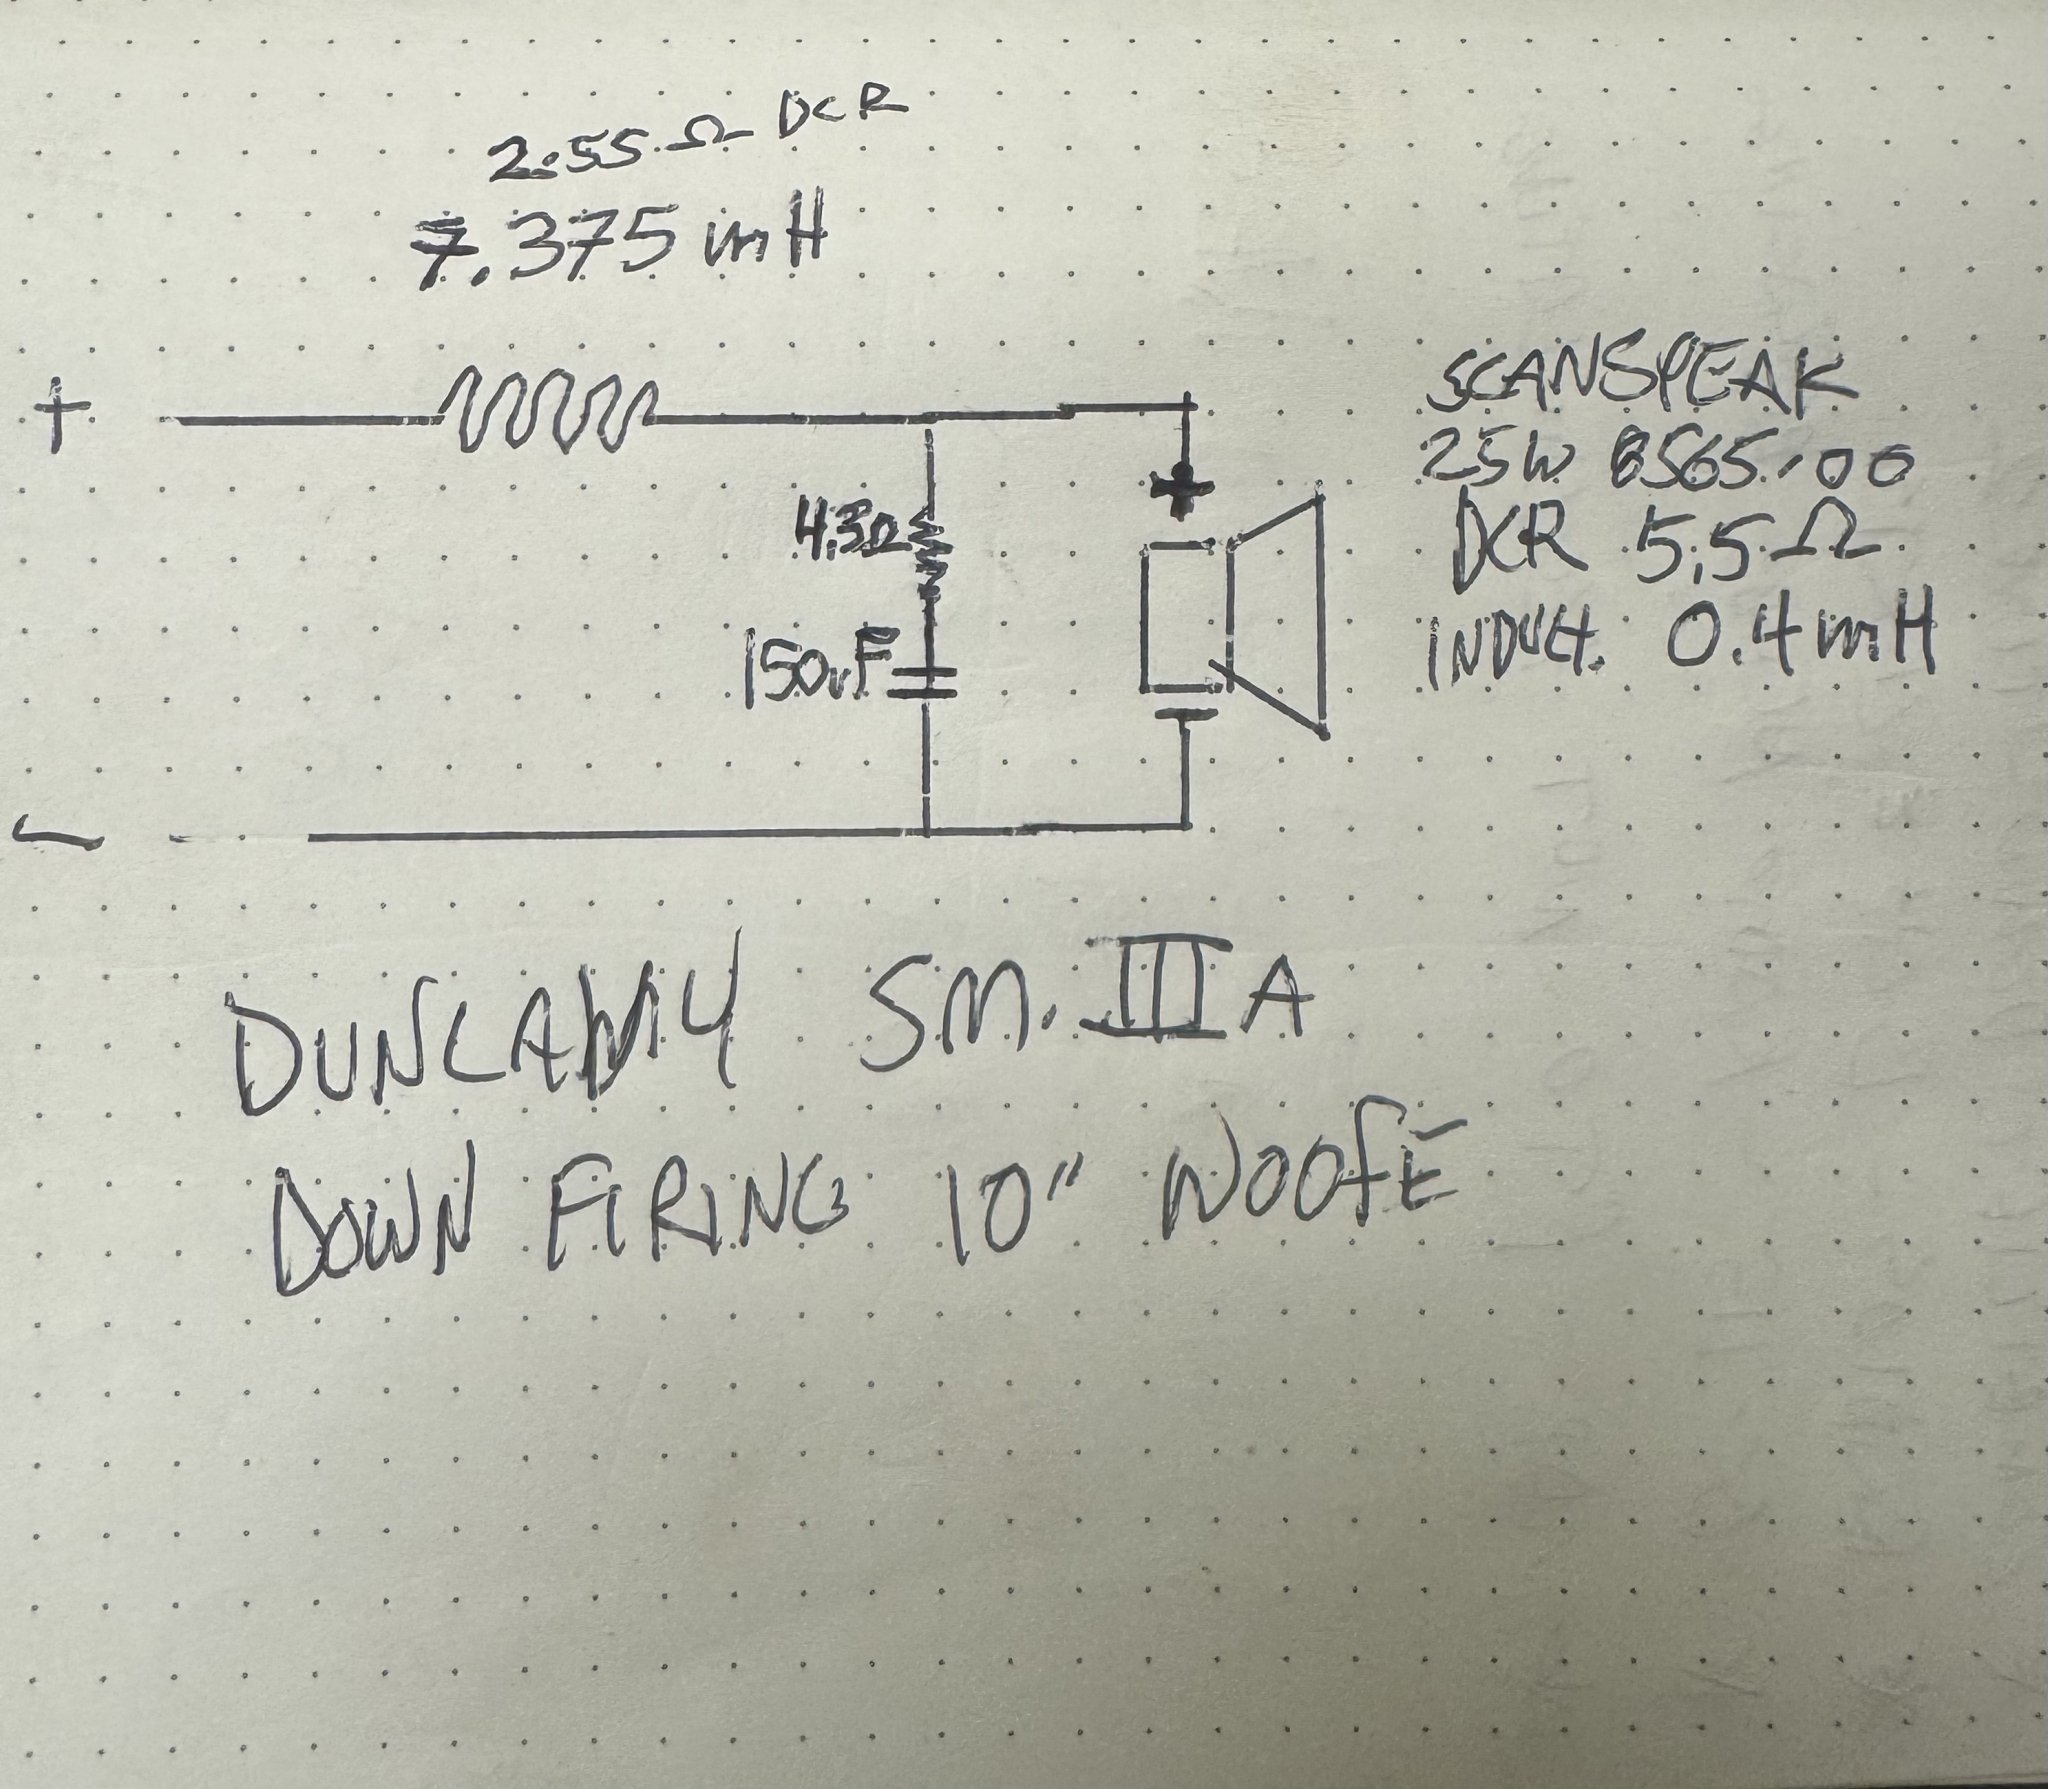 2.55 Ω DCR
7.375 mH
+
SCANSPEAK
25W 8565-00
+
4.3Ω
DCR 5.5 Ω
150uF
INDUCT. 0.4 mH
-
-
SM. III A
DOWN FIRING 10" WOOFE